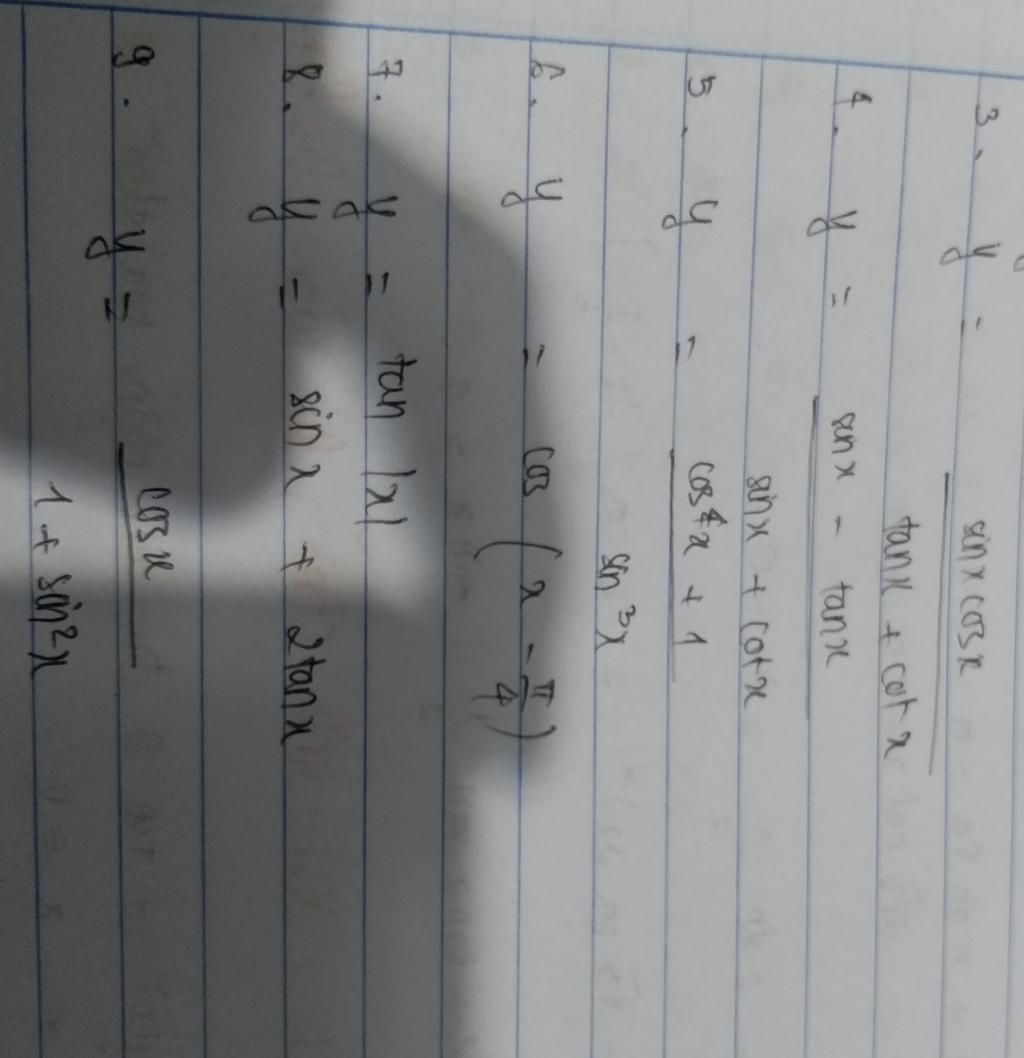 3. y = sinx cosx
tanx + cotx
4. y = sinx - tanx
sinx + cotx
5. y = cos⁴x + 1
sin³x
6. y = cos (x - π/4)
7. y = tan |x|
8. y = sinx + 2tanx
9. y = cosx
1 + sin²x